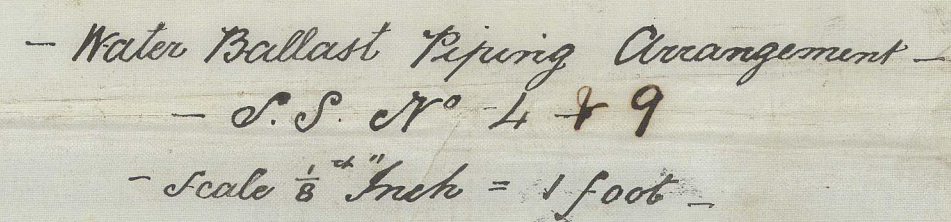 - Water Ballast Piping Arrangement -
- S.S. Nº 4 & 9
- Scale ⅛th" Inch = 1 foot -